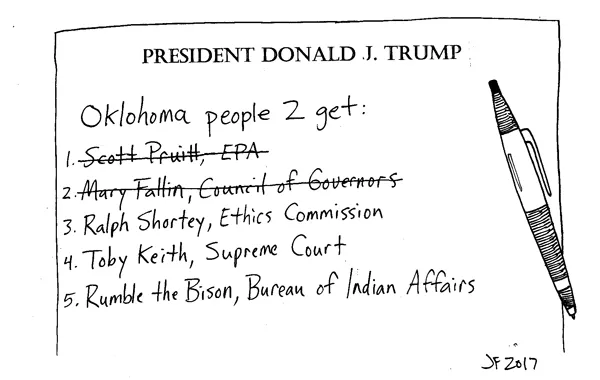 PRESIDENT DONALD J. TRUMP
Oklohoma people 2 get:
1. Scott Pruitt, EPA
2. Mary Fallin, Council of Governors
3. Ralph Shortey, Ethics Commission
4. Toby Keith, Supreme Court
5. Rumble the Bison, Bureau of Indian Affairs
JF2017